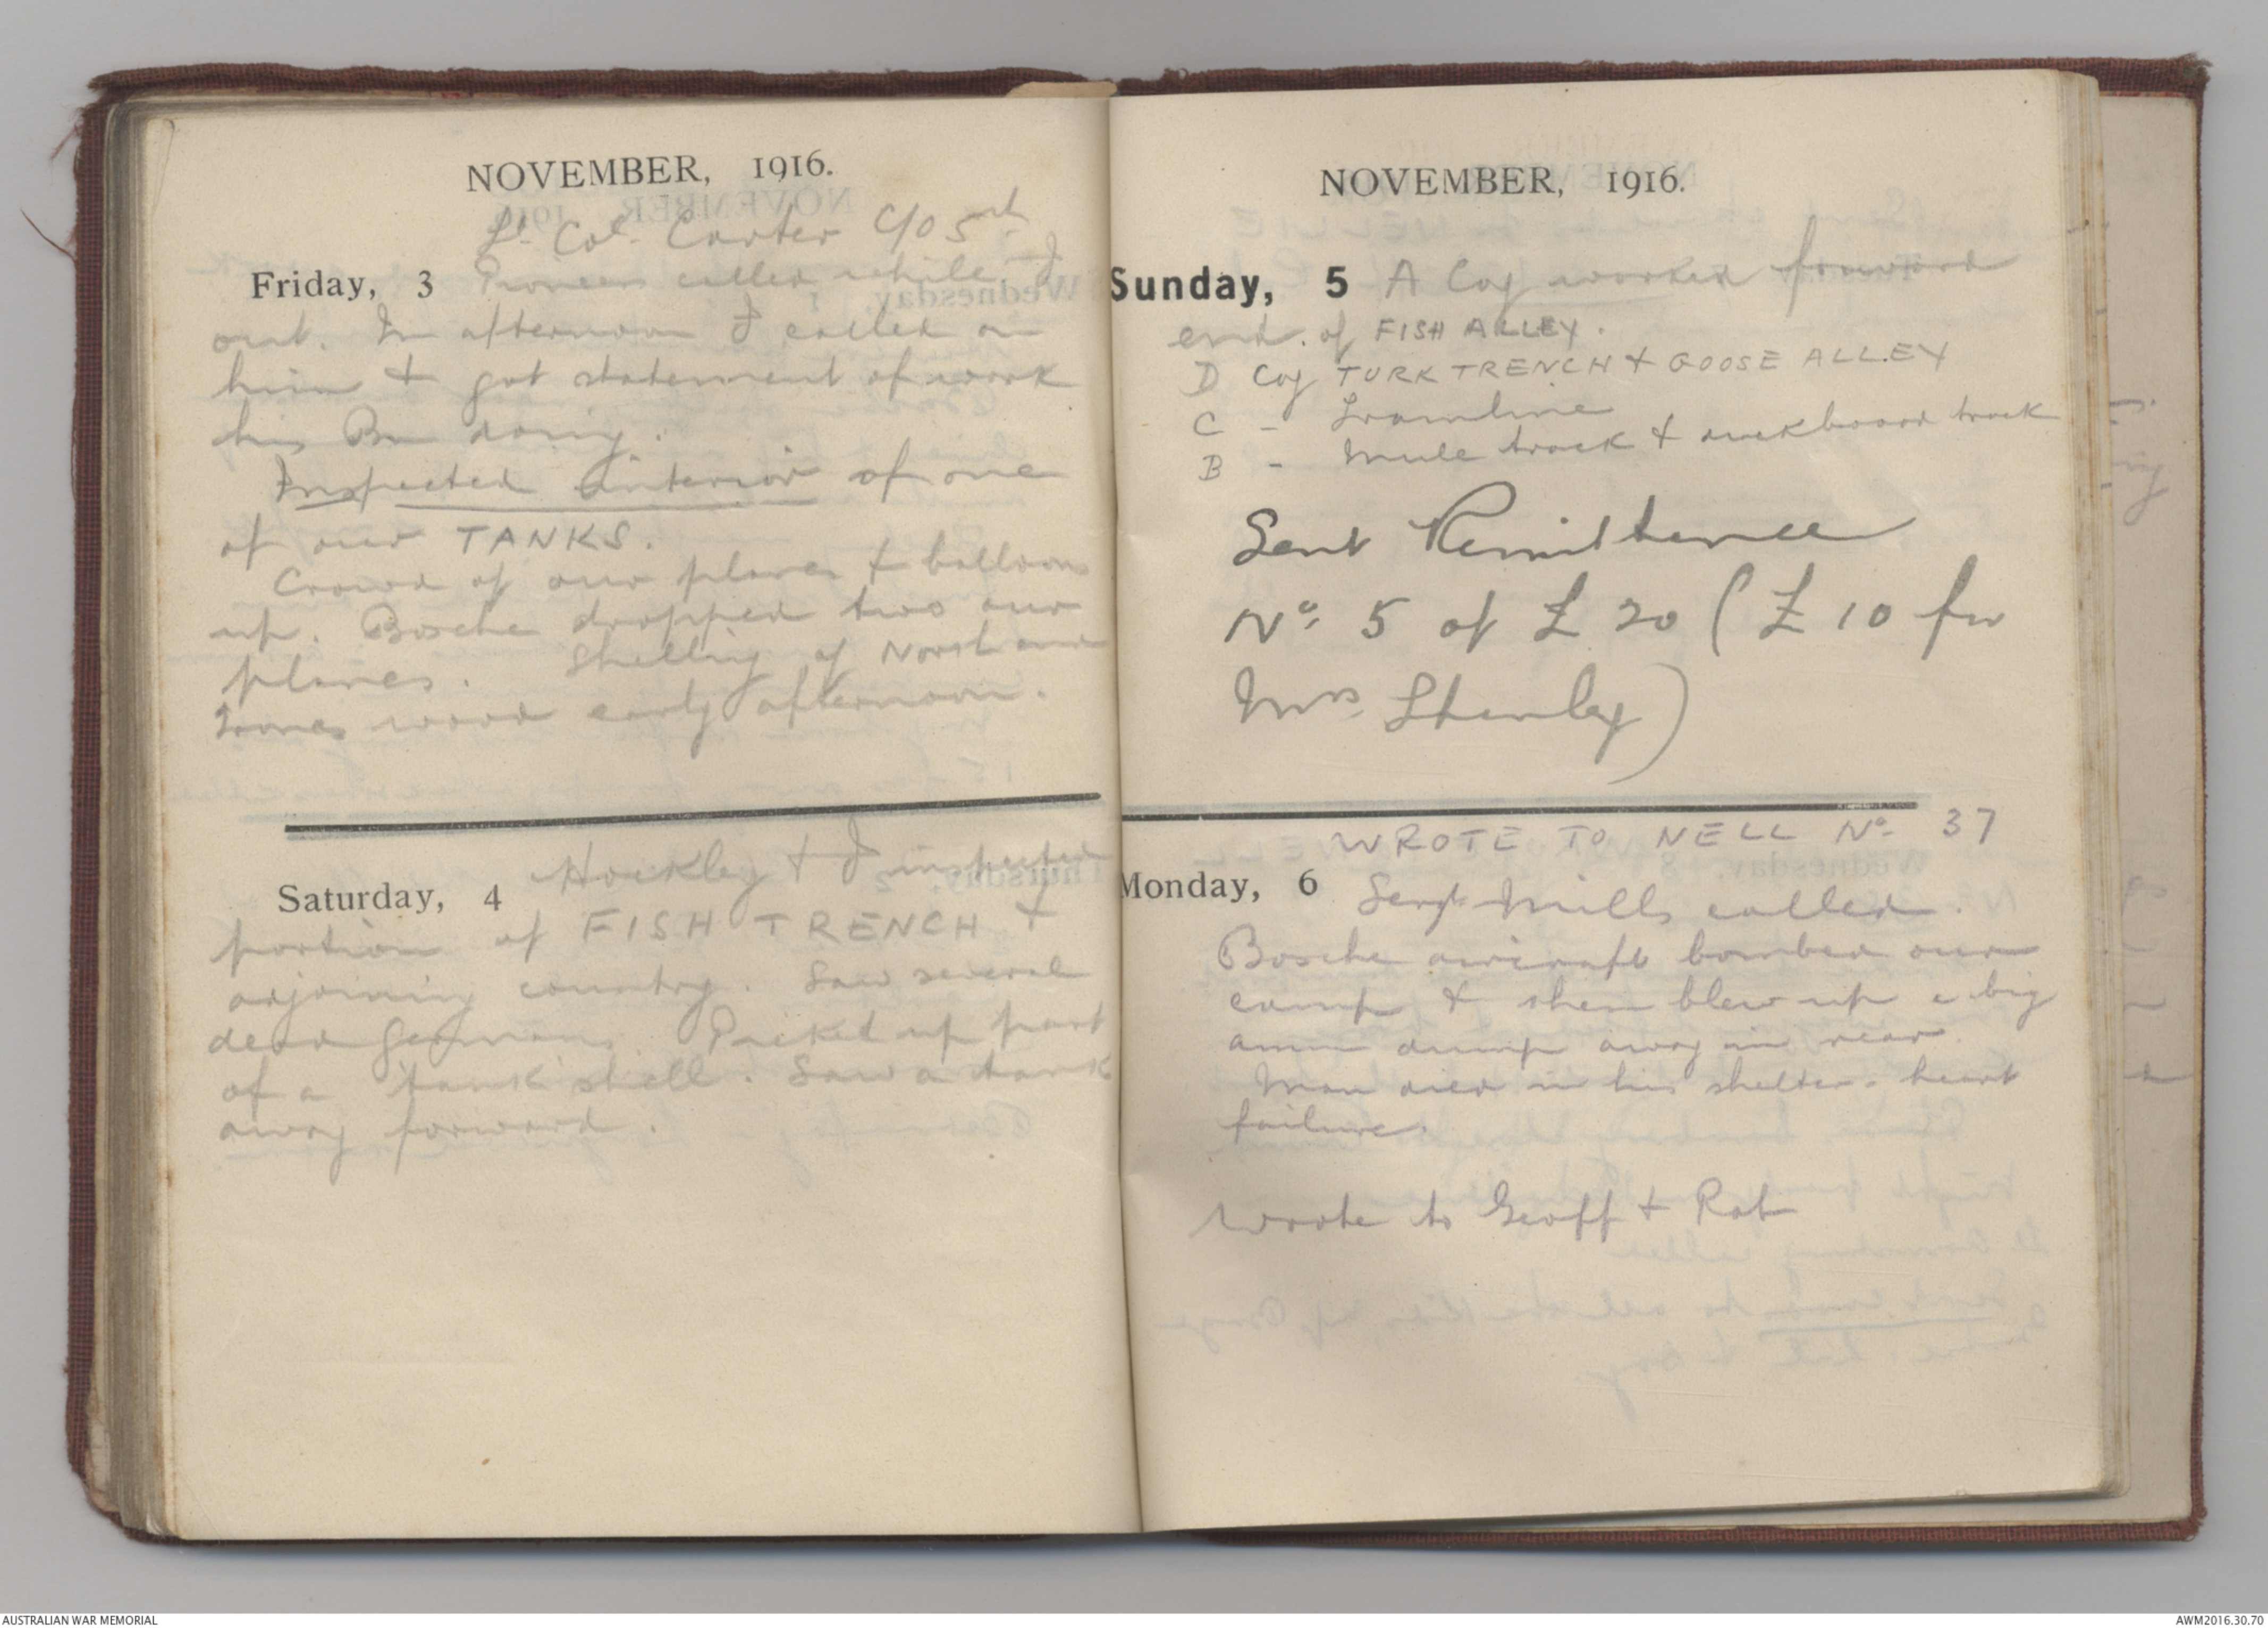 NOVEMBER, 1916.
Lt. Col. Carter C/O 5th
Friday, 3 Pioneers called while I
out. In afternoon I called on
him & got statement of work
his Bn doing.
Inspected interior of one
of our TANKS.
Crowd of our planes & balloons
up. Bosche dropped two our
planes. Shelling of North and
Trones wood early afternoon.
Hockley & I inspected
Saturday, 4
portion of FISH TRENCH &
adjoining country. Saw several
dead Germans. Picked up part
of a 'tank' shell. Saw a tank
away forward.
NOVEMBER, 1916.
Sunday, 5 A Coy worked forward
end. of FISH ALLEY.
D Coy TURK TRENCH & GOOSE ALLEY
C - Tramline
B - Mule track & duckboard track
Sent Remittance
No. 5 of £20 (£10 for
Mrs Stanley)
WROTE TO NELL No. 37
Monday, 6 Sergt Mills called.
Bosche aircraft bombed our
camp & then blew up a big
amm dump away in rear
Man died in his shelter - heart
failure.
Wrote to Geoff &
AUSTRALIAN WAR MEMORIAL
AWM2016.30.70